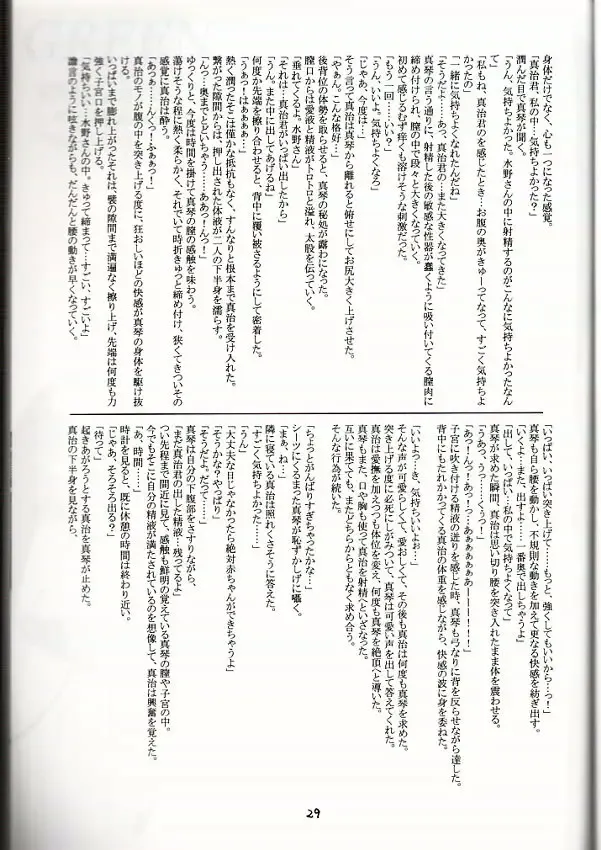 身体だけでなく、心も一つになった感覚。
「真治君、私の中…気持ちよかった？」
潤んだ目で真琴が聞く。
「うん、気持ちよかった。水野さんの中に射精するのがこんなに気持ちよかったなん
て」
「私もね、真治君のを感じたとき…お腹の奥がきゅーってなってて、すごく気持ちよ
かったの」
「一緒に気持ちよくなれたんだね」
「そうだよ……あっ、真治君の…また大きくなってきた」
真琴の言う通りに、射精した後の敏感な性器が蠢くように吸い付いてくる膣肉に
締め付けられ、膣の中で段々と大きくなっていく。
初めて感じるむず痒くも溶けそうな刺激だった。
「もう一回……いい？」
「うん、いいよ。気持ちよくなろう」
「じゃあ、今度は…」
そう言って真治は真琴から離れると俯せにしてお尻大きく上げさせた。
「やぁん。こんな格好…」
後背位の体勢を取らせると、真琴の秘処が露わになった。
膣口からは愛液と精液がトロトロと溢れ、太股を伝っていく。
「垂れてくるよ。水野さん」
「それは…真治君がいっぱい出したから」
「うん。また中に出してあげるね」
何度か先端を擦り合わせると、背中に覆い被さるようにして密着した。
「うぁっ！はぁぁぁ…」
熱く潤ったそこは僅かな抵抗もなく、すんなりと根本まで真治を受け入れた。
繋がった隙間からは、押し出された体液が二人の下半身を濡らす。
「んっ…奥までとどいちゃう……ああっーんっ！」
ゆっくりと、今度は時間を掛けて真琴の膣の感触を味わう。
蕩けそうな程に熱く柔らかく、それでいて時折きゅっと締め付け、狭くてきついその
感覚に真治は酔う。
「あっぁ……んくっ！ふぁぁっ！」
真治のモノが腹の中を突き上げる度に、狂おしいほどの快感が真琴の身体を駆け抜
ける。
いっぱいまで膨れ上がったそれは、襞の隙間まで満遍なく擦り上げ、先端は何度も力
強く子宮口を押し上げる。
「気持ちいい…水野さんの中。きゅって締まって…すごい、すごいよ」
譫言のように呟きながらも、だんだんと腰の動きが早くなっていく。
「いっぱい、いっぱい突き上げて……もっと、強くしてもいいから…っ！」
真琴も自ら腰を動かし、不規則な動きを加えて更なる快感を紡ぎ出す。
「いくよ…また、出すよ……一番奥で出しちゃうよ」
「出して、いっぱい…私の中で気持ちよくなって」
真琴が求めた瞬間、真治は思い切り腰を突き入れたまま体を震わせる。
「うあっ、うっ……くぅっ！」
「あっ！んっ！あっーっ…あぁぁぁぁあーーー！！！」
子宮に吹き付ける精液の迸りを感じた時、真琴も弓なりに背を反らせながら達した。
背中にもたれかかってくる真治の体重を感じながら、快感の波に身を委ねた。
「いいよっ…き、気持ちいいよぉ…」
そんな声が可愛らしくて、愛おしくて、その後も真治は何度も真琴を求めた。
突き上げる度に必死にしがみついて、真琴は可愛い声を出して答えてくれた。
真治は愛撫を加えつつも体位を変え、何度も真琴を絶頂へと導いた。
真琴もまた、口や胸も使って真治を射精へといざなった。
互いに果てても、またどちらからともなく求め合う。
そんな行為が続いた。
「ちょっとがんばりすぎちゃったかな…」
シーツにくるまった真琴が恥ずかしげに囁く。
「まぁ、ね…」
隣に寝ている真治は照れくさそうに答えた。
「すごく気持ちよかった……」
「うん」
「大丈夫な日じゃなかったら絶対赤ちゃんができちゃうよ」
「そうかな？やっぱり」
「そうだよ。だって……」
真琴は自分の下腹部をさすりながら、
「まだ真治君の出した精液…残ってるよ」
つい先程まで間近に見て、感触も鮮明の覚えている真琴の膣や子宮の中。
今でもそこに自分の精液が満たされているのを想像して、真治は興奮を覚えた。
「あ、時間……」
時計を見ると、既に休憩の時間は終わり近い。
「じゃあ、そろそろ出るっ」
「待って」
起きあがろうとする真治を真琴が止めた。
真治の下半身を見ながら、
29